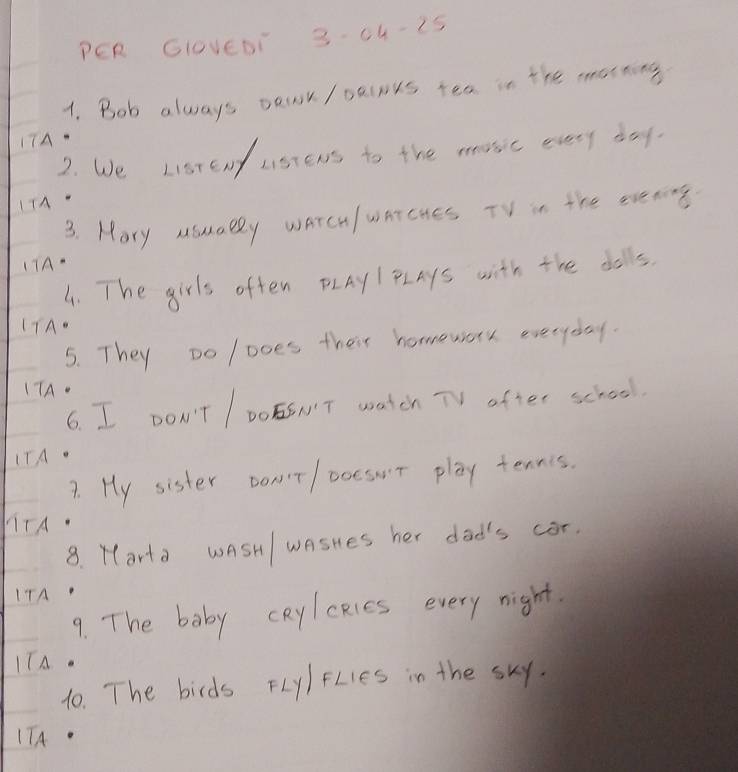 PER GIOVEDÌ 3-04-25
1. Bob always DRINK/DRINKS tea in the morning.
ITA •
2. We LISTEN/LISTENS to the music every day.
ITA •
3. Mary usually WATCH/WATCHES TV in the evening.
ITA •
4. The girls often PLAY/PLAYS with the dolls.
ITA •
5. They DO/DOES their homework everyday.
ITA •
6. I DON'T/DOESN'T watch TV after school.
ITA •
7. My sister DON'T/DOESN'T play tennis.
ITA •
8. Marta WASH/WASHES her dad's car.
ITA •
9. The baby CRY/CRIES every night.
ITA •
10. The birds FLY/FLIES in the sky.
ITA •